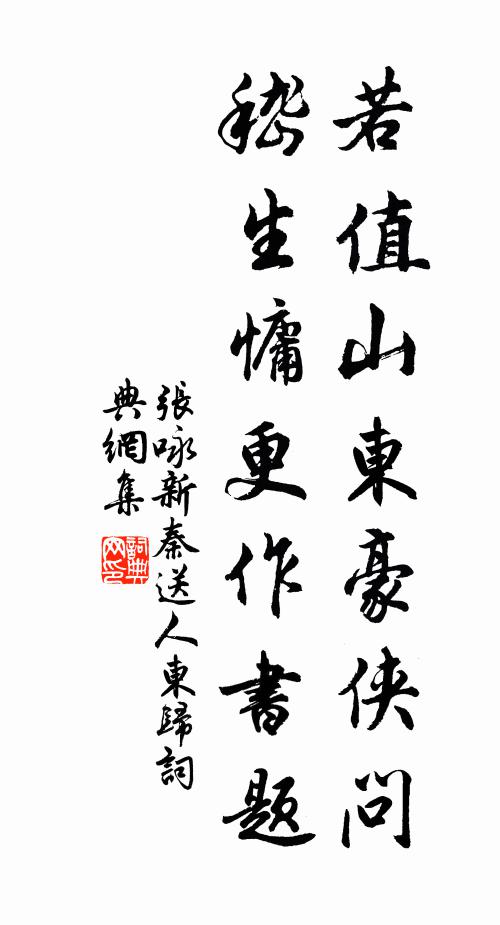 若值山東豪俠問
嵇生慵更作書題
張咏新秦送人東歸詞
典網集
詞典
网印